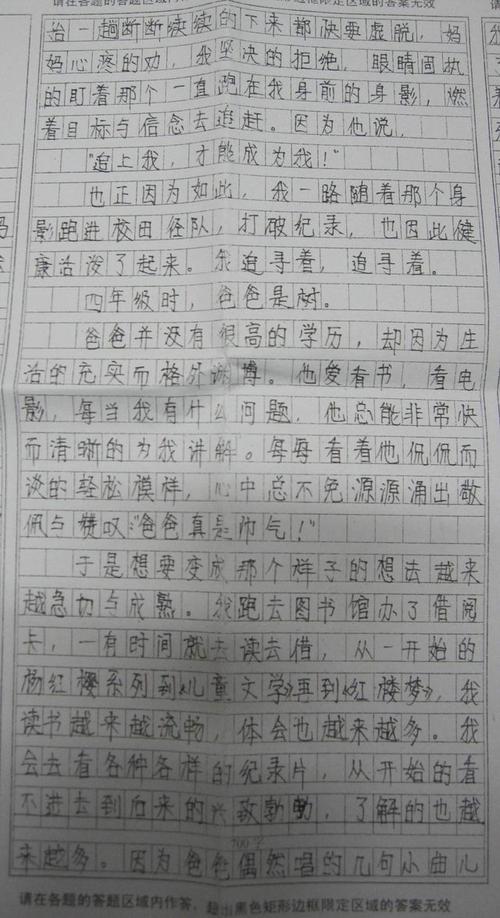 请在各题的答题区域内作答，超出黑色矩形边框限定区域的答案无效
始一趟断断续续的下来都快要虚脱，妈
妈心疼的劝，我坚决的拒绝，眼睛固执
的盯着那个一直跑在我身前的身影，燃
着目标与信念去追赶。因为他说，
“追上我，才能成为我！”
也正因为如此，我一路随着那个身
影跑进校田径队，打破纪录，也因此健
康活泼了起来。我追寻着，追寻着。
四年级时，爸爸是树。
爸爸并没有很高的学历，却因为生
活的充实而格外渊博。他爱看书，看电
影，每当我有什么问题，他总能非常快
而清晰的为我讲解。每每看着他侃侃而
谈的轻松模样，心中总不免源源涌出敬
佩与赞叹：“爸爸真是帅气！”
于是想要变成那个样子的想法越来
越急切与成熟。我跑去图书馆办了借阅
卡，一有时间就去读去借，从一开始的
杨红樱系列到《儿童文学》再到《红楼梦》，我
读书越来越流畅，体会也越来越多。我
会去看各种各样的纪录片，从开始的看
不进去到后来的兴致勃勃，了解的也越
700字
来越多。因为爸爸偶然唱的几句小曲儿
请在各题的答题区域内作答，超出黑色矩形边框限定区域的答案无效